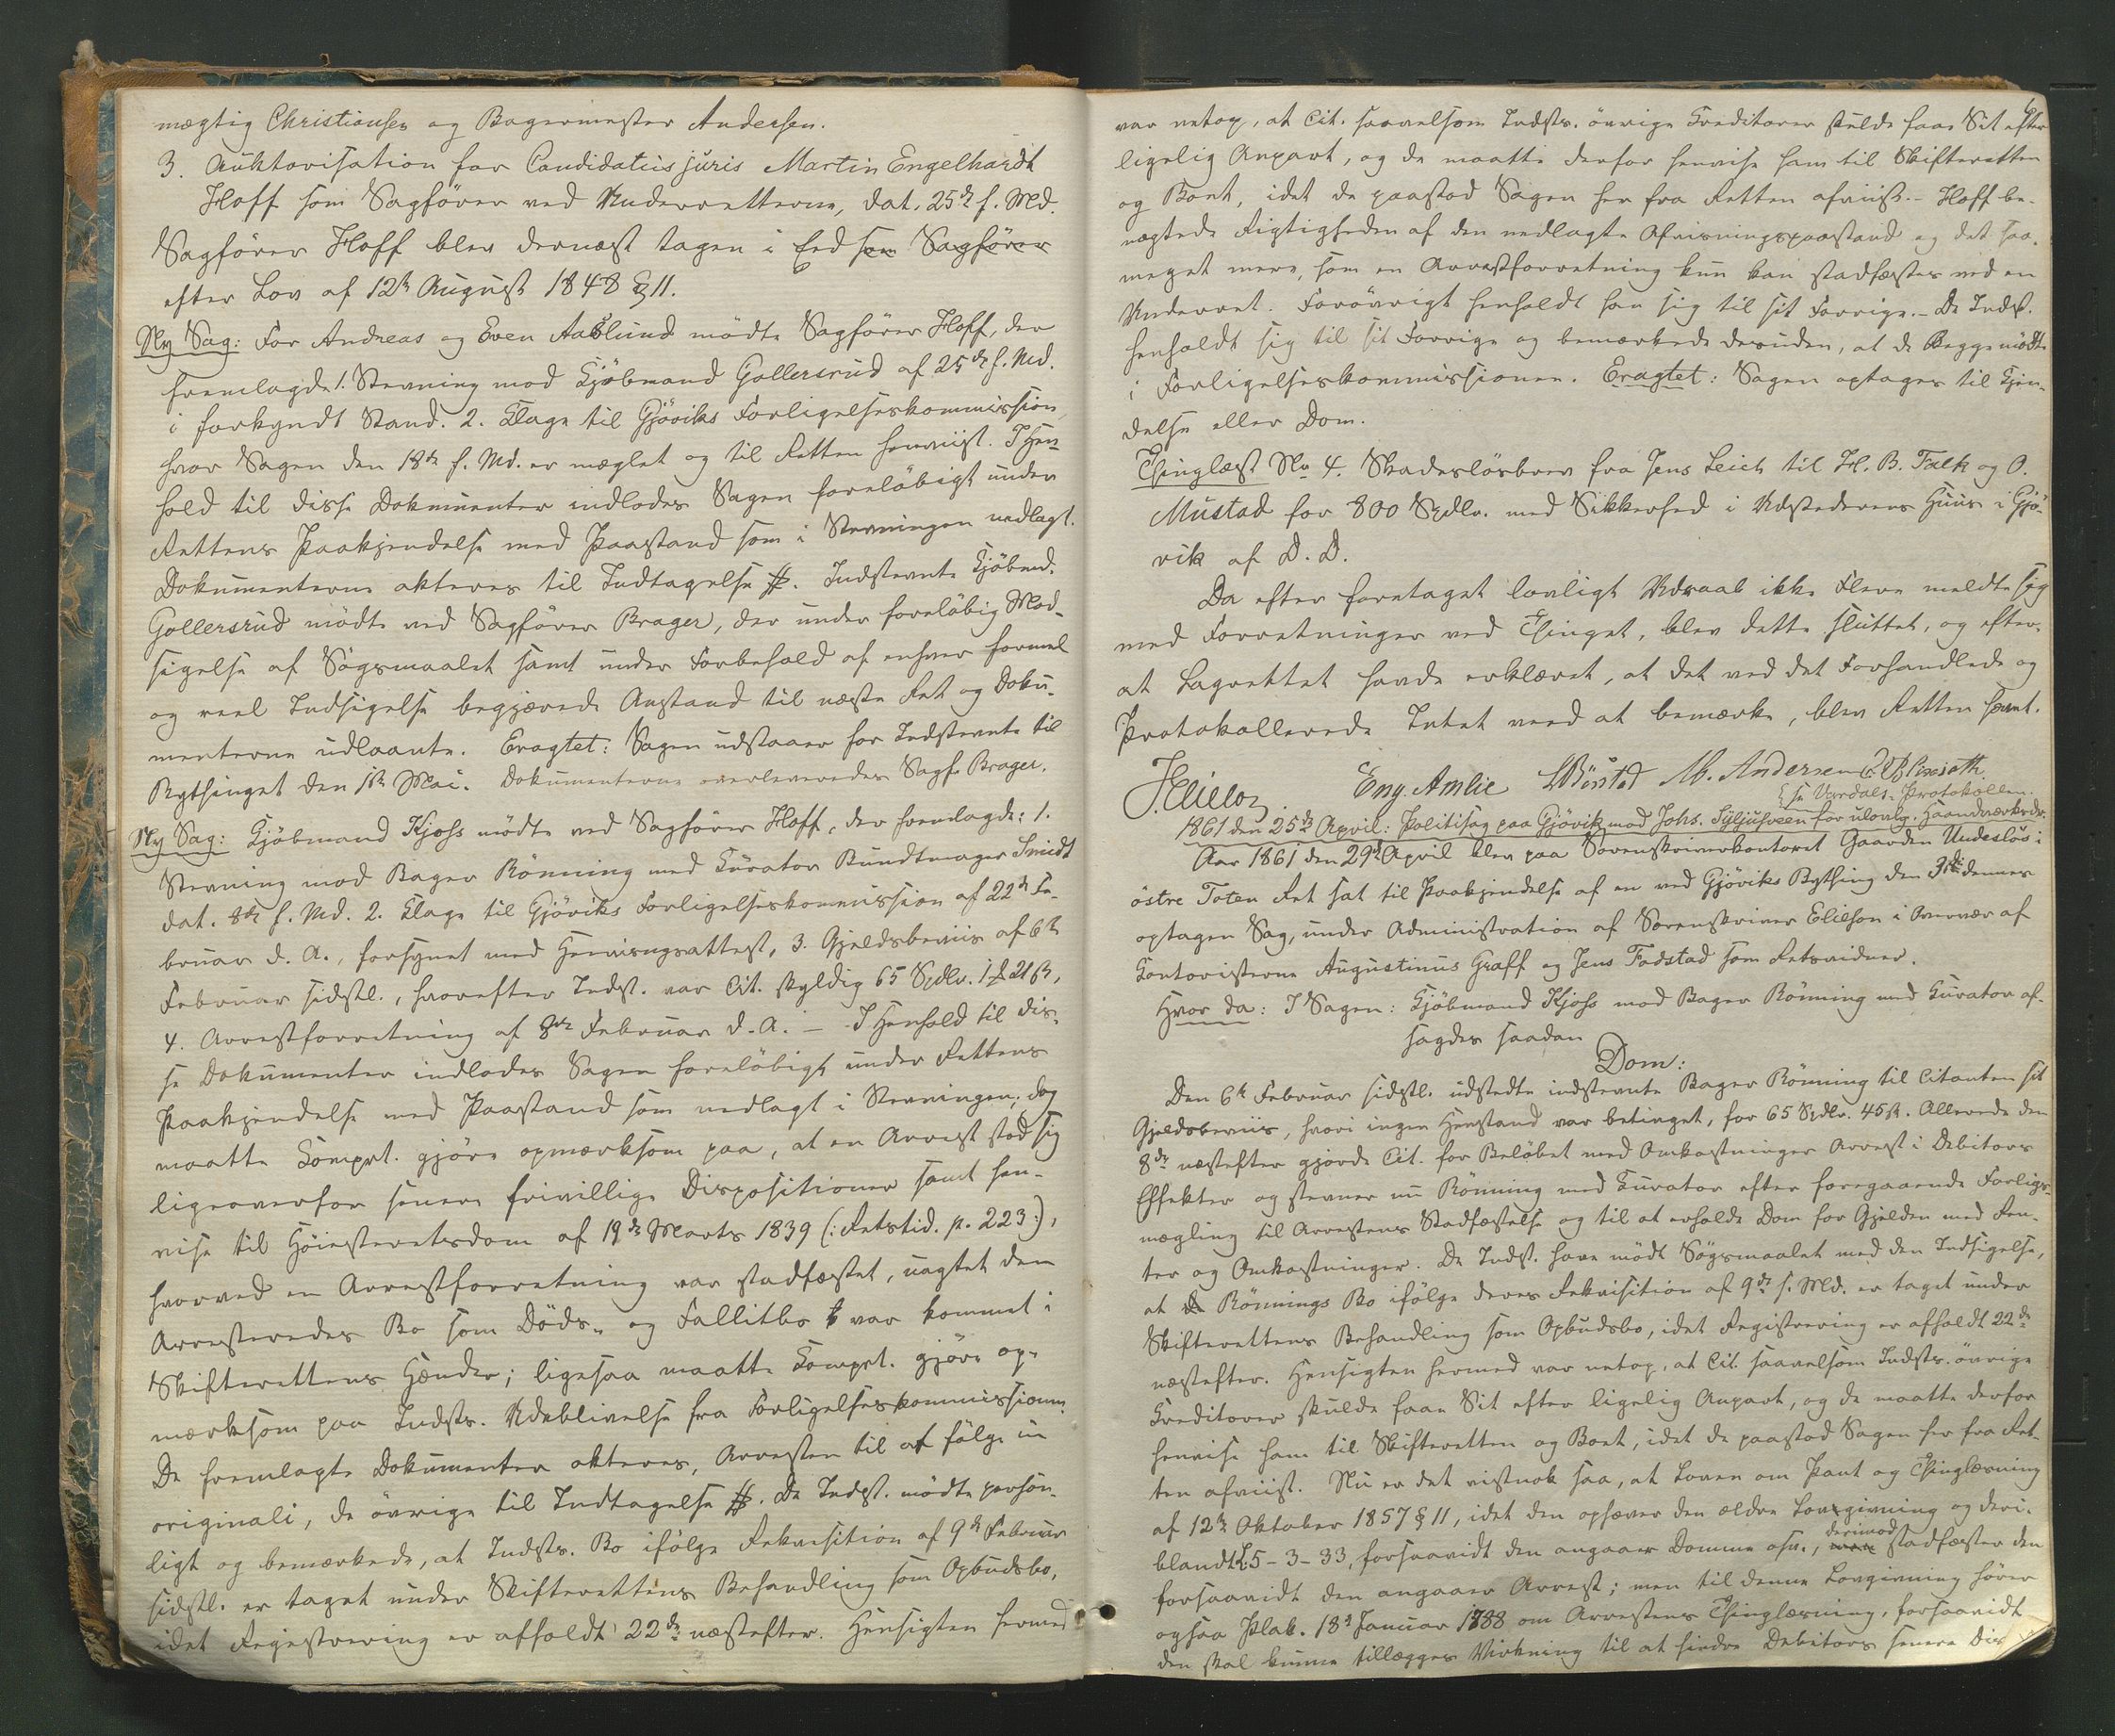 mægtig Christiansen og Bagermester Andersen.
3. Auktorisation for Candidatus juris Martin Engelhardt
Hoff som Sagförer ved Underretterne, dat. 25de f. Md.
Sagförer Hoff blev dernæst tagen i Eed som Sagförer
efter Lov af 12te August 1848 § 11.
Ny Sag: For Andreas og Even Aaslund mödte Sagförer Hoff, der
fremlagde 1. Stevning mod Kjöbmand Gollersrud af 25de f. Md.
i forkyndt Stand. 2. Klage til Gjöviks Forligelseskommission,
hvor Sagen den 18de f. Md. er mæglet og til Retten henviist. I Hen-
hold til disse Dokumenter indlodes Sagen foreløbigt under
Rettens Paakjendelse med Paastand som i Stevningen nedlagt.
Dokumenterne akteres til Indtagelse. Indstevnte Kjöbmd.
Gollersrud mödte ved Sagförer Brager, der under foreløbig Mod-
sigelse af Sögsmaalet samt under Forbehold af enhver formel
og reel Indsigelse begjærede Anstand til næste Ret og Doku-
menterne udlaante. Eragtet: Sagen udstaaer for Indstevnte til
Bythinget den 1ste Mai. Dokumenterne overleveredes Sagf. Brager.
Ny Sag: Kjöbmand Kjoss mödte ved Sagförer Hoff, der fremlagde: 1.
Stevning mod Bager Rönning med Kurator Bundtmager Smidt
dat. 8de f. Md. 2. Klage til Gjöviks Forligelseskommission af 22de Fe-
bruar d. A., forsynet med Henvisngsattest, 3. Gjeldsbeviis af 6te
Februar sidstl., hvorefter Indst. var Cit. skyldig 65 Spdlr. 1 21 ß,
4. Arrestforretning af 8de Februar d. A. — I Henhold til dis-
se Dokumenter indlodes Sagen foreløbigt under Rettens
Paakjendelse med Paastand som nedlagt i Stevningen; dog
maatte Kompt. gjöre opmærksom paa, at en Arrest stod sig
ligeoverfor senere frivillige Dispositioner samt hen-
vise til Höiesteretsdom af 19de Marts 1839 (: Retstid. p. 223:),
hvorved en Arrestforretning var stadfæstet, uagtet den
Arresteredes Bo som Döds- og Fallitbo var kommet i
Skifterettens Hænder; ligesaa maatte Kompt. gjöre op-
mærksom paa Indsts. Udeblivelse fra Forligelseskommissionen.
De fremlagte Dokumenter akteres, Arresten til at fölge in
originali, de övrige til Indtagelse. De Indst. mödte person-
ligt og bemærkede, at Indsts. Bo ifölge Rekvisition af 9de Februar
sidstl. er taget under Skifterettens Behandling som Opbudsbo,
idet Registrering er afholdt 22de næstefter. Hensigten hermed
var netop, at Cit. saavelsom Indsts. övrige Kreditorer skulde faae Sit efter
ligelig Anpart, og de maatte derfor henvise ham til Skifteretten
og Boet, idet de paastod Sagen her fra Retten afviist. - Hoff be-
nægtede Rigtigheden af den nedlagte Afvisningspaastand og det saa-
meget mere, som en Arrestforretning kun kan stadfæstes ved en
Underret. Forövrigt henholdt han sig til sit Forrige. - De Indst.
henholdt sig til sit Forrige og bemærkede desuden, at de Begge mödte
i Forligelseskommissionen. Eragtet: Sagen optages til Kjen-
delse eller Dom.
Thinglæst No 4. Skadeslösbrev fra Jens Leich til H. B. Falk og O.
Mustad for 800 Spdlr. med Sikkerhed i Udstederens Huus i Gjö-
vik af D. D.
Da efter foretaget lovligt Udraab ikke Flere meldte sig
med Forretninger ved Thinget, blev dette sluttet, og efter-
at Lagrettet havde erklæret, at det ved det Forhandlede og
Protokollerede Intet meed at bemærke, blev Retten hævet.
Eng. Amlie M. Andersen
1861 den 25de April: Politisag paa Gjövik mod Johs. Syljusveen for ulovlg. Haandværksdr.
se Vardals-Protokollen.
Aar 1861 den 29de April blev paa Sorenskriverkontoret Gaarden Undeslös i
östre Toten Ret sat til Paakjendelse af en ved Gjöviks Bything den 3die dennes
optagen Sag, under Administration af Sorenskriver Elieson i Overvær af
Kontoristerne Augustinus Graff og Jens Fodstad som Retsvidner.
Hvor da: I Sagen: Kjöbmand Kjoss mod Bager Rönning med Kurator af-
sagdes saadan
Dom:
Den 6te Februar sidstl. udstedte indstevnte Bager Rönning til Citanten sit
Gjeldsbeviis, hvori ingen Henstand var betinget, for 65 Spdlr. 45 ß. Allerede den
8de næstefter gjorde Cit. for Belöbet med Omkostninger Arrest i Debitors
Effekter og stevner nu Rönning med Kurator efter foregaaende Forligs-
mægling til Arrestens Stadfæstelse og til at erholde Dom for Gjelden med Ren-
ter og Omkostninger. De Indst. have mödt Sögsmaalet med den Indsigelse,
at de Rönnings Bo ifölge deres Rekvisition af 9de f. Md. er taget under
Skifterettens Behandling som Opbudsbo, idet Registrering er afholdt 22de
næstefter. Hensigten hermed var netop, at Cit. saavelsom Indsts. övrige
Kreditorer skulde faae Sit efter ligelig Anpart, og de maatte derfor
henvise ham til Skifteretten og Boet, idet de paastod Sagen her fra Ret-
ten afviist. Nu er det vistnok saa, at Loven om Pant og Thinglæsning
af 12te Oktober 1857 § 11, idet den ophæver den ældre Lovgivning og deri-
blandt L. 5-3-33, forsaavidt den angaaer Domme osv., derimod stadfæster den
forsaavidt den angaaer Arrest; men til denne Lovgivning hörer
ogsaa Plak. 18de Januar 1788 om Arrestens Thinglæsning, forsaavidt
den skal kunne tillægges Virkning til at hindre Debitors senere Dis